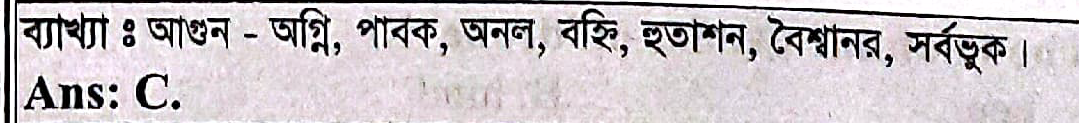 ব্যাখ্যা ঃ আগুন - অগ্নি, পাবক, অনল, বহ্নি, হুতাশন, বৈশ্বানর, সর্বভূক।
Ans: C.